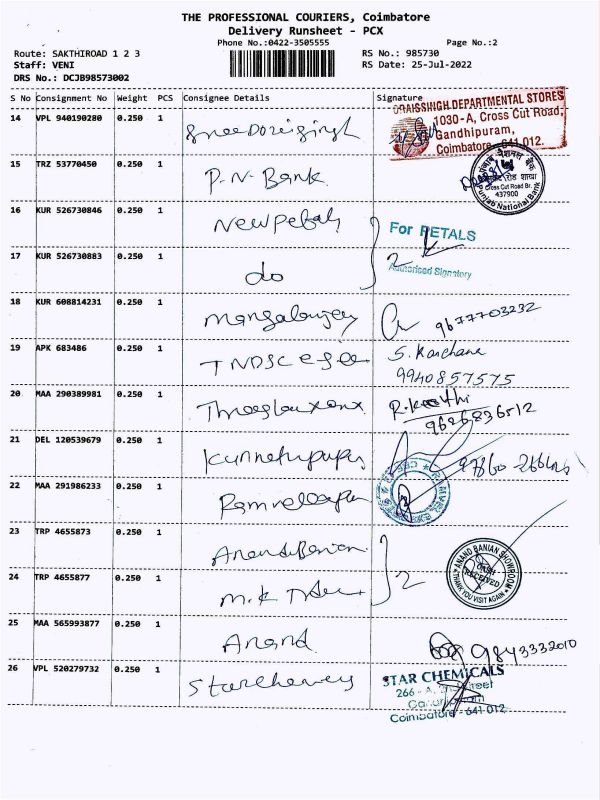 THE PROFESSIONAL COURIERS, Coimbatore
Delivery Runsheet - PCX
Phone No.:0422-3505555 Page No.:2
Route: SAKTHIROAD 1 2 3 RS No.: 985730
Staff: VENI RS Date: 25-Jul-2022
DRS No.: DCJB98573002
S No Consignment No Weight PCS Consignee Details Signature
14 VPL 940190280 0.250 1
ORAISSINGH DEPARTMENTAL STORES
1030-A, Cross Cut Road,
Gandhipuram,
Coimbatore - 641 012.
15 TRZ 53770450 0.250 1 P.N. Bank
पंजाब नैशनल बैंक
Cross Cut Road Br.
437900
Punjab National Bank
16 KUR 526730846 0.250 1 New petals
For PETALS
17 KUR 526730883 0.250 1 do 2
Authorised Signatory
18 KUR 608814231 0.250 1 9677703232
19 APK 683486 0.250 1 TNDSC S. Kanchana
9940857575
20 MAA 290389981 0.250 1
9626836512
21 DEL 120539679 0.250 1
22 MAA 291986233 0.250 1
23 TRP 4655873 0.250 1 Anand Banian
ANAND BANIAN SHOWROOM
CASH
RECEIVED
THANK YOU VISIT AGAIN
24 TRP 4655877 0.250 1 M.K 2
25 MAA 565993877 0.250 1 Anand 9843332010
26 VPL 520279732 0.250 1
STAR CHEMICALS
266 - A, Street
Coimbatore - 641 012